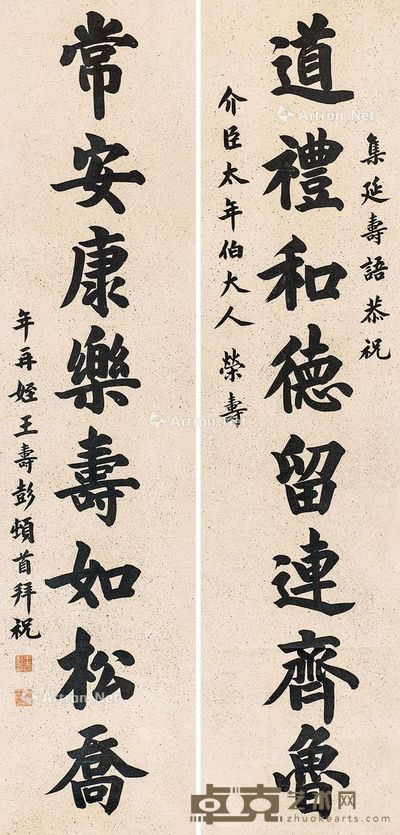 集延壽語恭祝
道禮和德留連齊魯
介臣太年伯大人 榮壽
常安康樂壽如松喬
年再姪王壽彭頓首拜祝
Artron.Net
Artron.Net
Artron.Net
Artron.Net
Artron.Net
卓克艺术网
zhuokearts.com